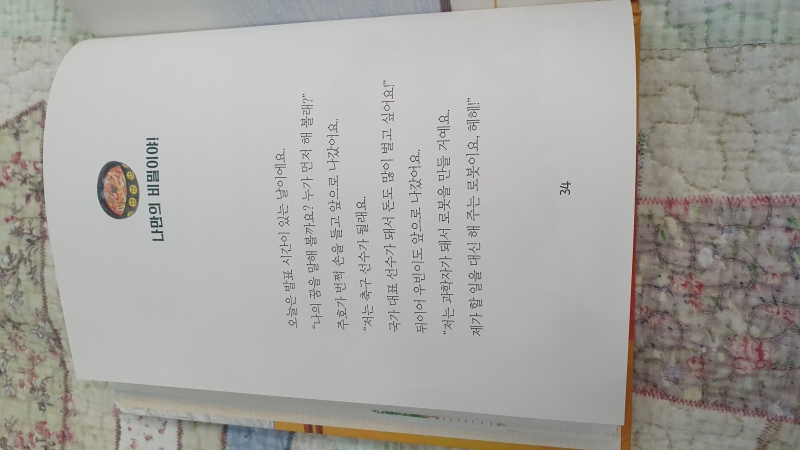 나만의 비밀이야!
오늘은 발표 시간이 있는 날이에요.
"나의 꿈을 말해 볼까요? 누가 먼저 해 볼래?"
주호가 번쩍 손을 들고 앞으로 나갔어요.
"저는 축구 선수가 될래요.
국가 대표 선수가 돼서 돈도 많이 벌고 싶어요!"
뒤이어 우빈이도 앞으로 나갔어요.
"저는 과학자가 돼서 로봇을 만들 거예요.
제가 할 일을 대신 해 주는 로봇이요, 헤헤!"
34